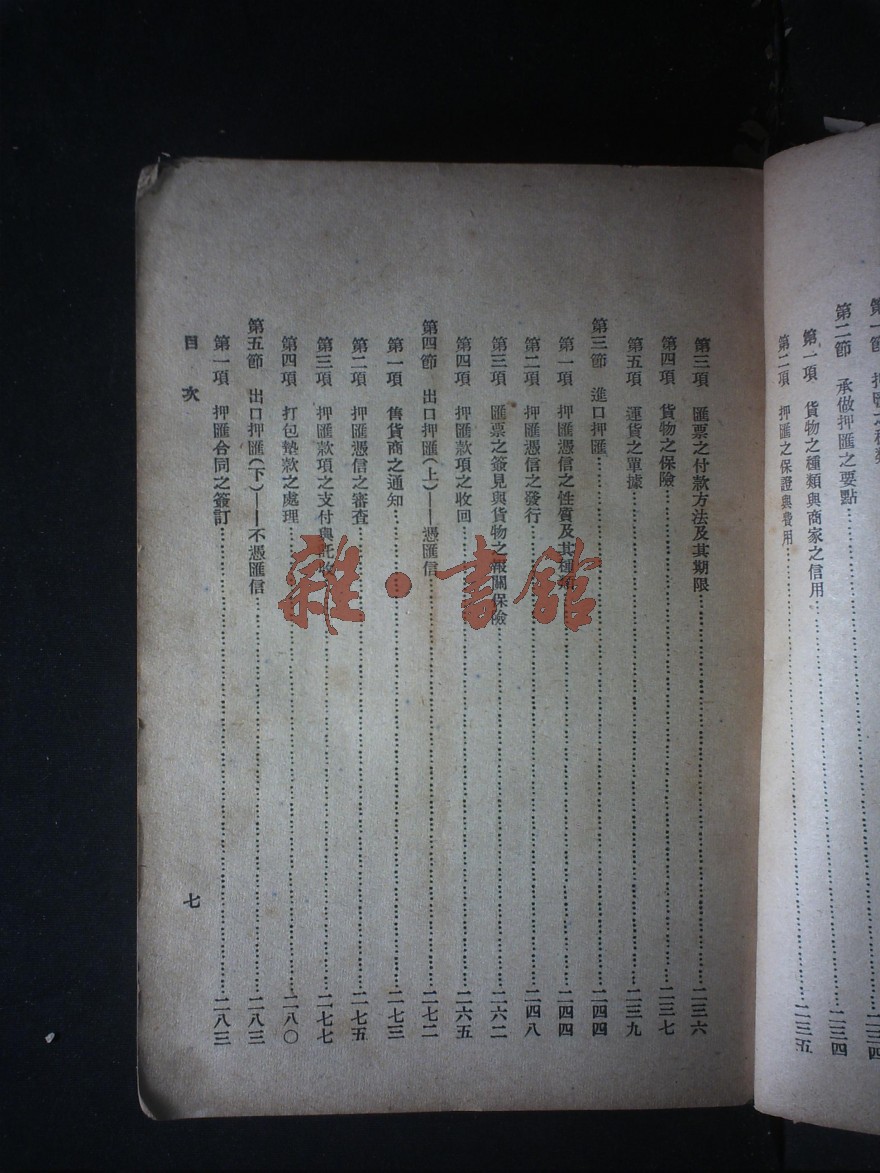 第二節 承做押匯之要點……二三四
第一項 貨物之種類與商家之信用……
第二項 押匯之保證與費用……二三五
第三項 匯票之付款方法及其期限……二三六
第四項 貨物之保險……二三七
第五項 運貨之單據……二三九
第三節 進口押匯……二四四
第一項 押匯憑信之性質及其種類……二四四
第二項 押匯憑信之發行……二四八
第三項 匯票之簽見與貨物之報關保險……二六二
第四項 押匯款項之收回……二六五
第四節 出口押匯(上)——憑匯信……二七二
第一項 售貨商之通知……二七三
第二項 押匯憑信之審查……二七五
第三項 押匯款項之支付與託收……二七七
第四項 打包墊款之處理……二八〇
第五節 出口押匯(下)——不憑匯信……二八三
第一項 押匯合同之簽訂……二八三
目次
七
雜·書館